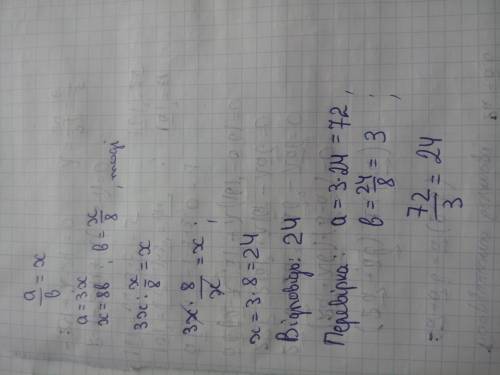 a/в = x
a = 3x
x = 8в ; в = x/8 , тоді
3x : x/8 = x
3x · 8/x = x ;
x = 3 · 8 = 24
Відповідь: 24
Перевірка: a = 3 · 24 = 72 ,
в = 24/8 = 3 ;
72/3 = 24